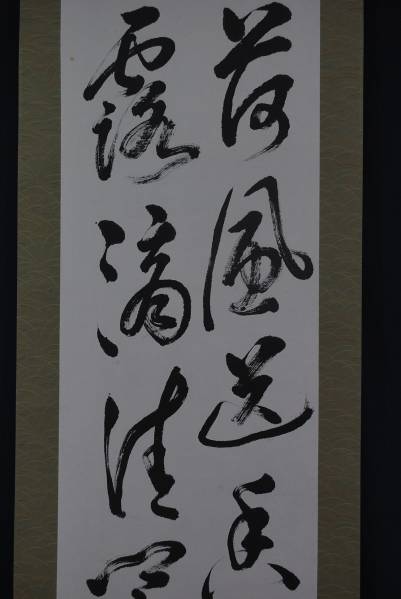 荷風送香
露滴清